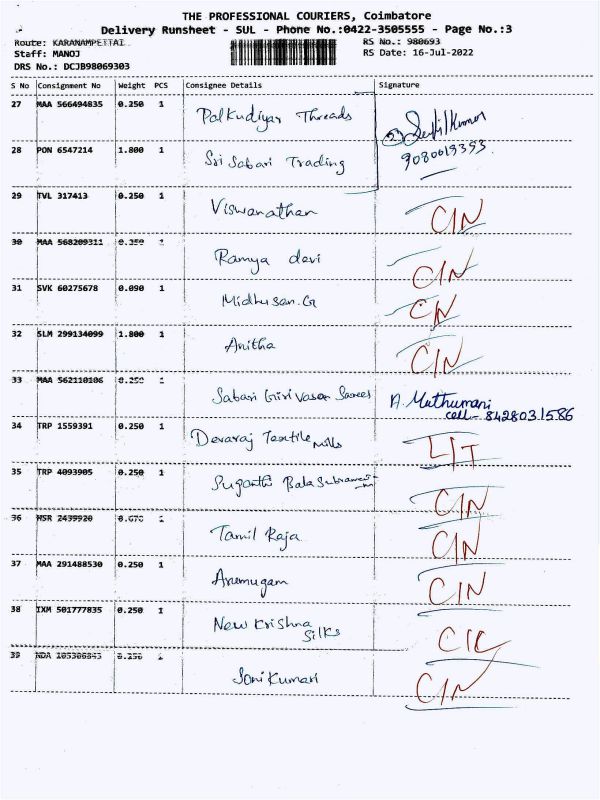 THE PROFESSIONAL COURIERS, Coimbatore
Delivery Runsheet - SUL - Phone No.:0422-3505555 - Page No.:3
Route: KARANAMPETTAI
RS No.: 980693
Staff: MANOJ
RS Date: 16-Jul-2022
DRS No.: DCJB98069303
S No Consignment No Weight PCS Consignee Details Signature
27 MAA 566494835 0.250 1 Palkudiyar Threads
Senthilkumar
28 PON 6547214 1.800 1 Sri Sabari Trading 9080613353
29 TVL 317413 0.250 1 Viswanathan CIN
30 MAA 568209311 0.350 1 Ramya devi CIN
31 SVK 60275678 0.090 1 Midhusan.G CIN
32 SLM 299134099 1.800 1 Anitha CIN
33 MAA 562110106 0.250 1 Sabari Giri Vasan Sarees A. Muthumani
call- 8428031586
34 TRP 1559391 0.250 1 Devaraj Textile Mills LIT
35 TRP 4093905 0.250 1 Suganthi CIN
36 HSR 2439920 0.670 1 Tamil Raja CIN
37 MAA 291488530 0.250 1 Arumugam CIN
38 IXM 501777835 0.250 1 New Krishna
Silks CIL
39 NDA 0.250 1 Soni Kumari CIN